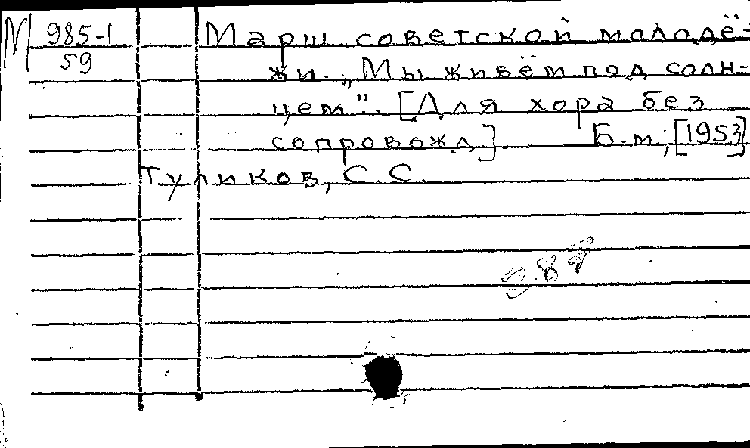 М 985-1 Марш советской молодё-
59 жи. „Мы живём под солн-
цем". [Для хора без
сопровожд.] Б.м., [1953]
Туликов, С.С.